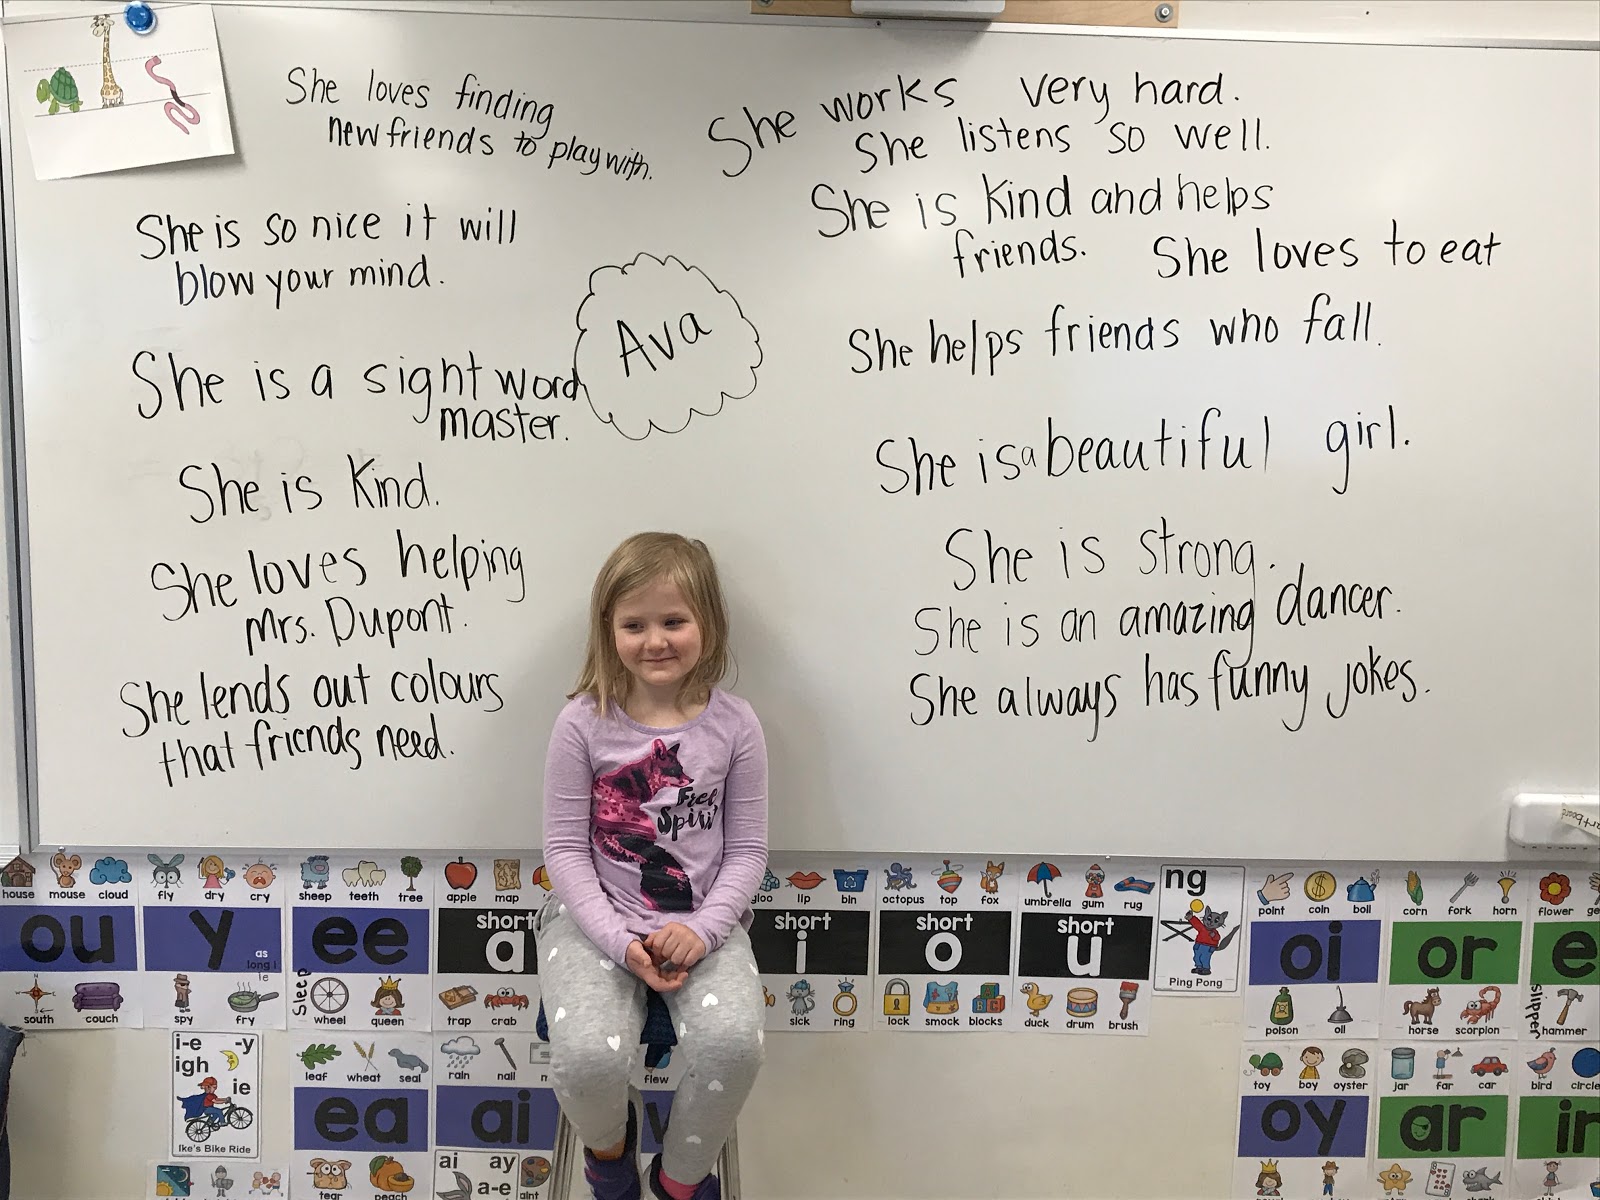 She loves finding
new friends to play with.
She is so nice it will
blow your mind.
She is a sight word
master.
She is kind.
She loves helping
Mrs. Dupont.
She lends out colours
that friends need.
Ava
She works very hard.
She listens so well.
She is kind and helps
friends.
She loves to eat
She helps friends who fall.
She is a beautiful girl.
She is strong.
She is an amazing dancer.
She always has funny jokes.
Free
Spirit
house mouse cloud
ou
south couch
fly dry cry
y
as
long i
ie
spy fry
sheep teeth tree
ee
Sleep
wheel queen
apple map
short
a
trap crab
lip bin
short
i
sick ring
octopus top fox
short
o
lock smock blocks
umbrella gum rug
short
u
duck drum brush
ng
Ping Pong
point coin boil
oi
poison oil
corn fork horn
or
horse scorpion
flower
e
slipper
hammer
i-e -y
igh
ie
Ike's Bike Ride
leaf wheat seal
ea
tear peach
rain nail
ai
ai ay
a-e
flew
toy boy oyster
oy
jar far car
ar
bird circle
ir